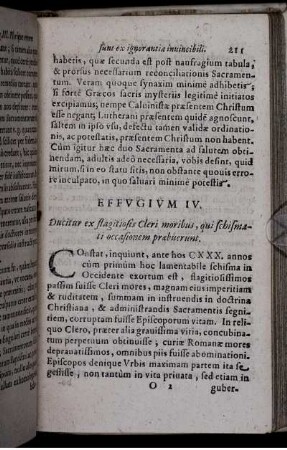 sunt ex ignorantia inuincibili. 211
habetis, quæ secunda est post naufragium tabula,
& prorsus necessarium reconciliationis Sacramen-
tum. Veram quoque synaxim minimè adhibetis:
si fortè Græcos sacris mysteriis legitimè initiatos
excipiamus; nempe Caluinistæ præsentem Christum
esse negant; Lutherani præsentem quidē agnoscunt,
saltem in ipso vsu, defectu tamen validæ ordinatio-
nis, ac potestatis, præsentem Christum non habent.
Cùm igitur hæc duo Sacramenta ad salutem obti-
nendam, adultis adeò necessaria, vobis desint, quid
mirum, si in eo statu sitis, non obstante quouis erro-
re inculpato, in quo saluari minimè potestis.
EFFVGIVM IV.
Ducitur ex flagitiosis Cleri moribus, qui schisma-
ti occasionem præbuerunt.
COnstat, inquiunt, ante hos CXXX. annos
cùm primùm hoc lamentabile schisma in
Occidente exortum est, flagitiosissimos
passim fuisse Cleri mores, magnam eius imperitiam
& ruditatem, summam in instruendis in doctrina
Christiana, & administrandis Sacramentis segni-
tiem, corruptam fuisse Episcoporum vitam. In reli-
quo Clero, præter alia grauissima vitia, concubina-
tum perpetuum obtinuisse; curiæ Romanæ mores
deprauatissimos, omnibus piis fuisse abominationi.
Episcopos denique Vrbis maximam partem ita se
gessisse, non tantùm in vita priuata, sed etiam in
O 2 guber-